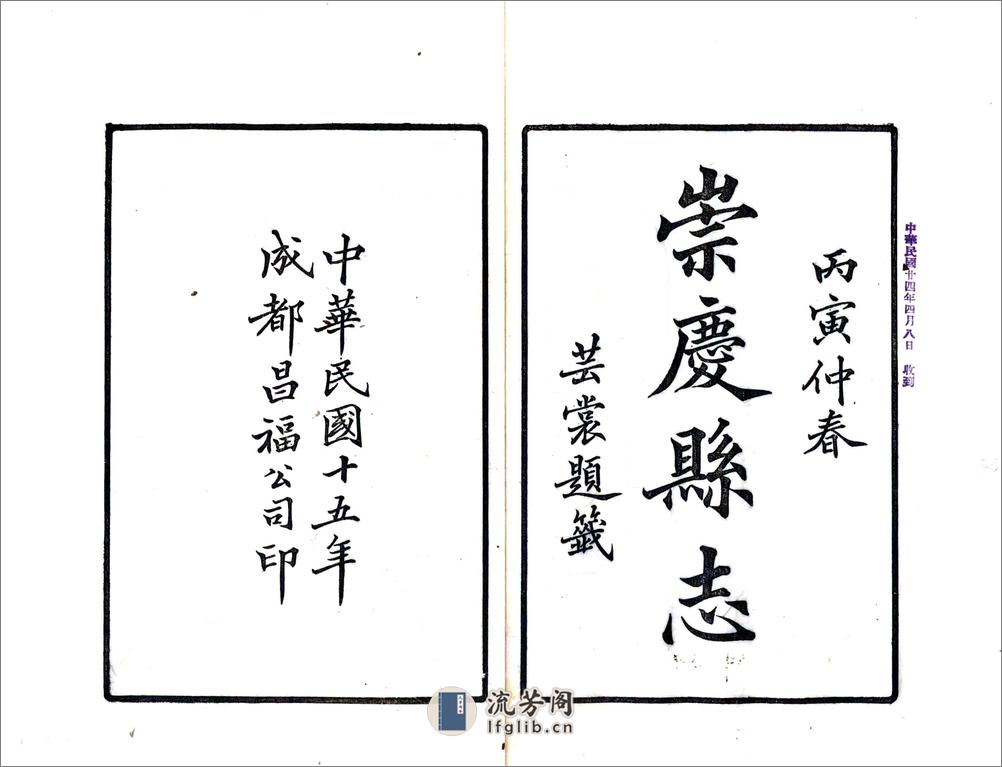 中華民國廿四年四月八日 收到
丙寅仲春
崇慶縣志
芸裳題籤
中華民國十五年
成都昌福公司印
流芳阁
lfglib.cn